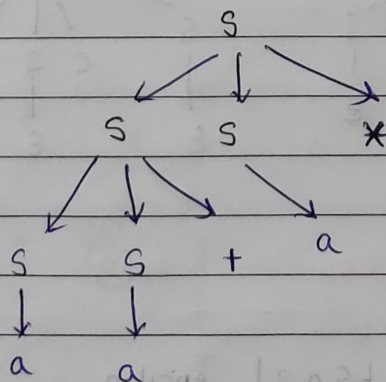 S
S S *
S S + a
a a